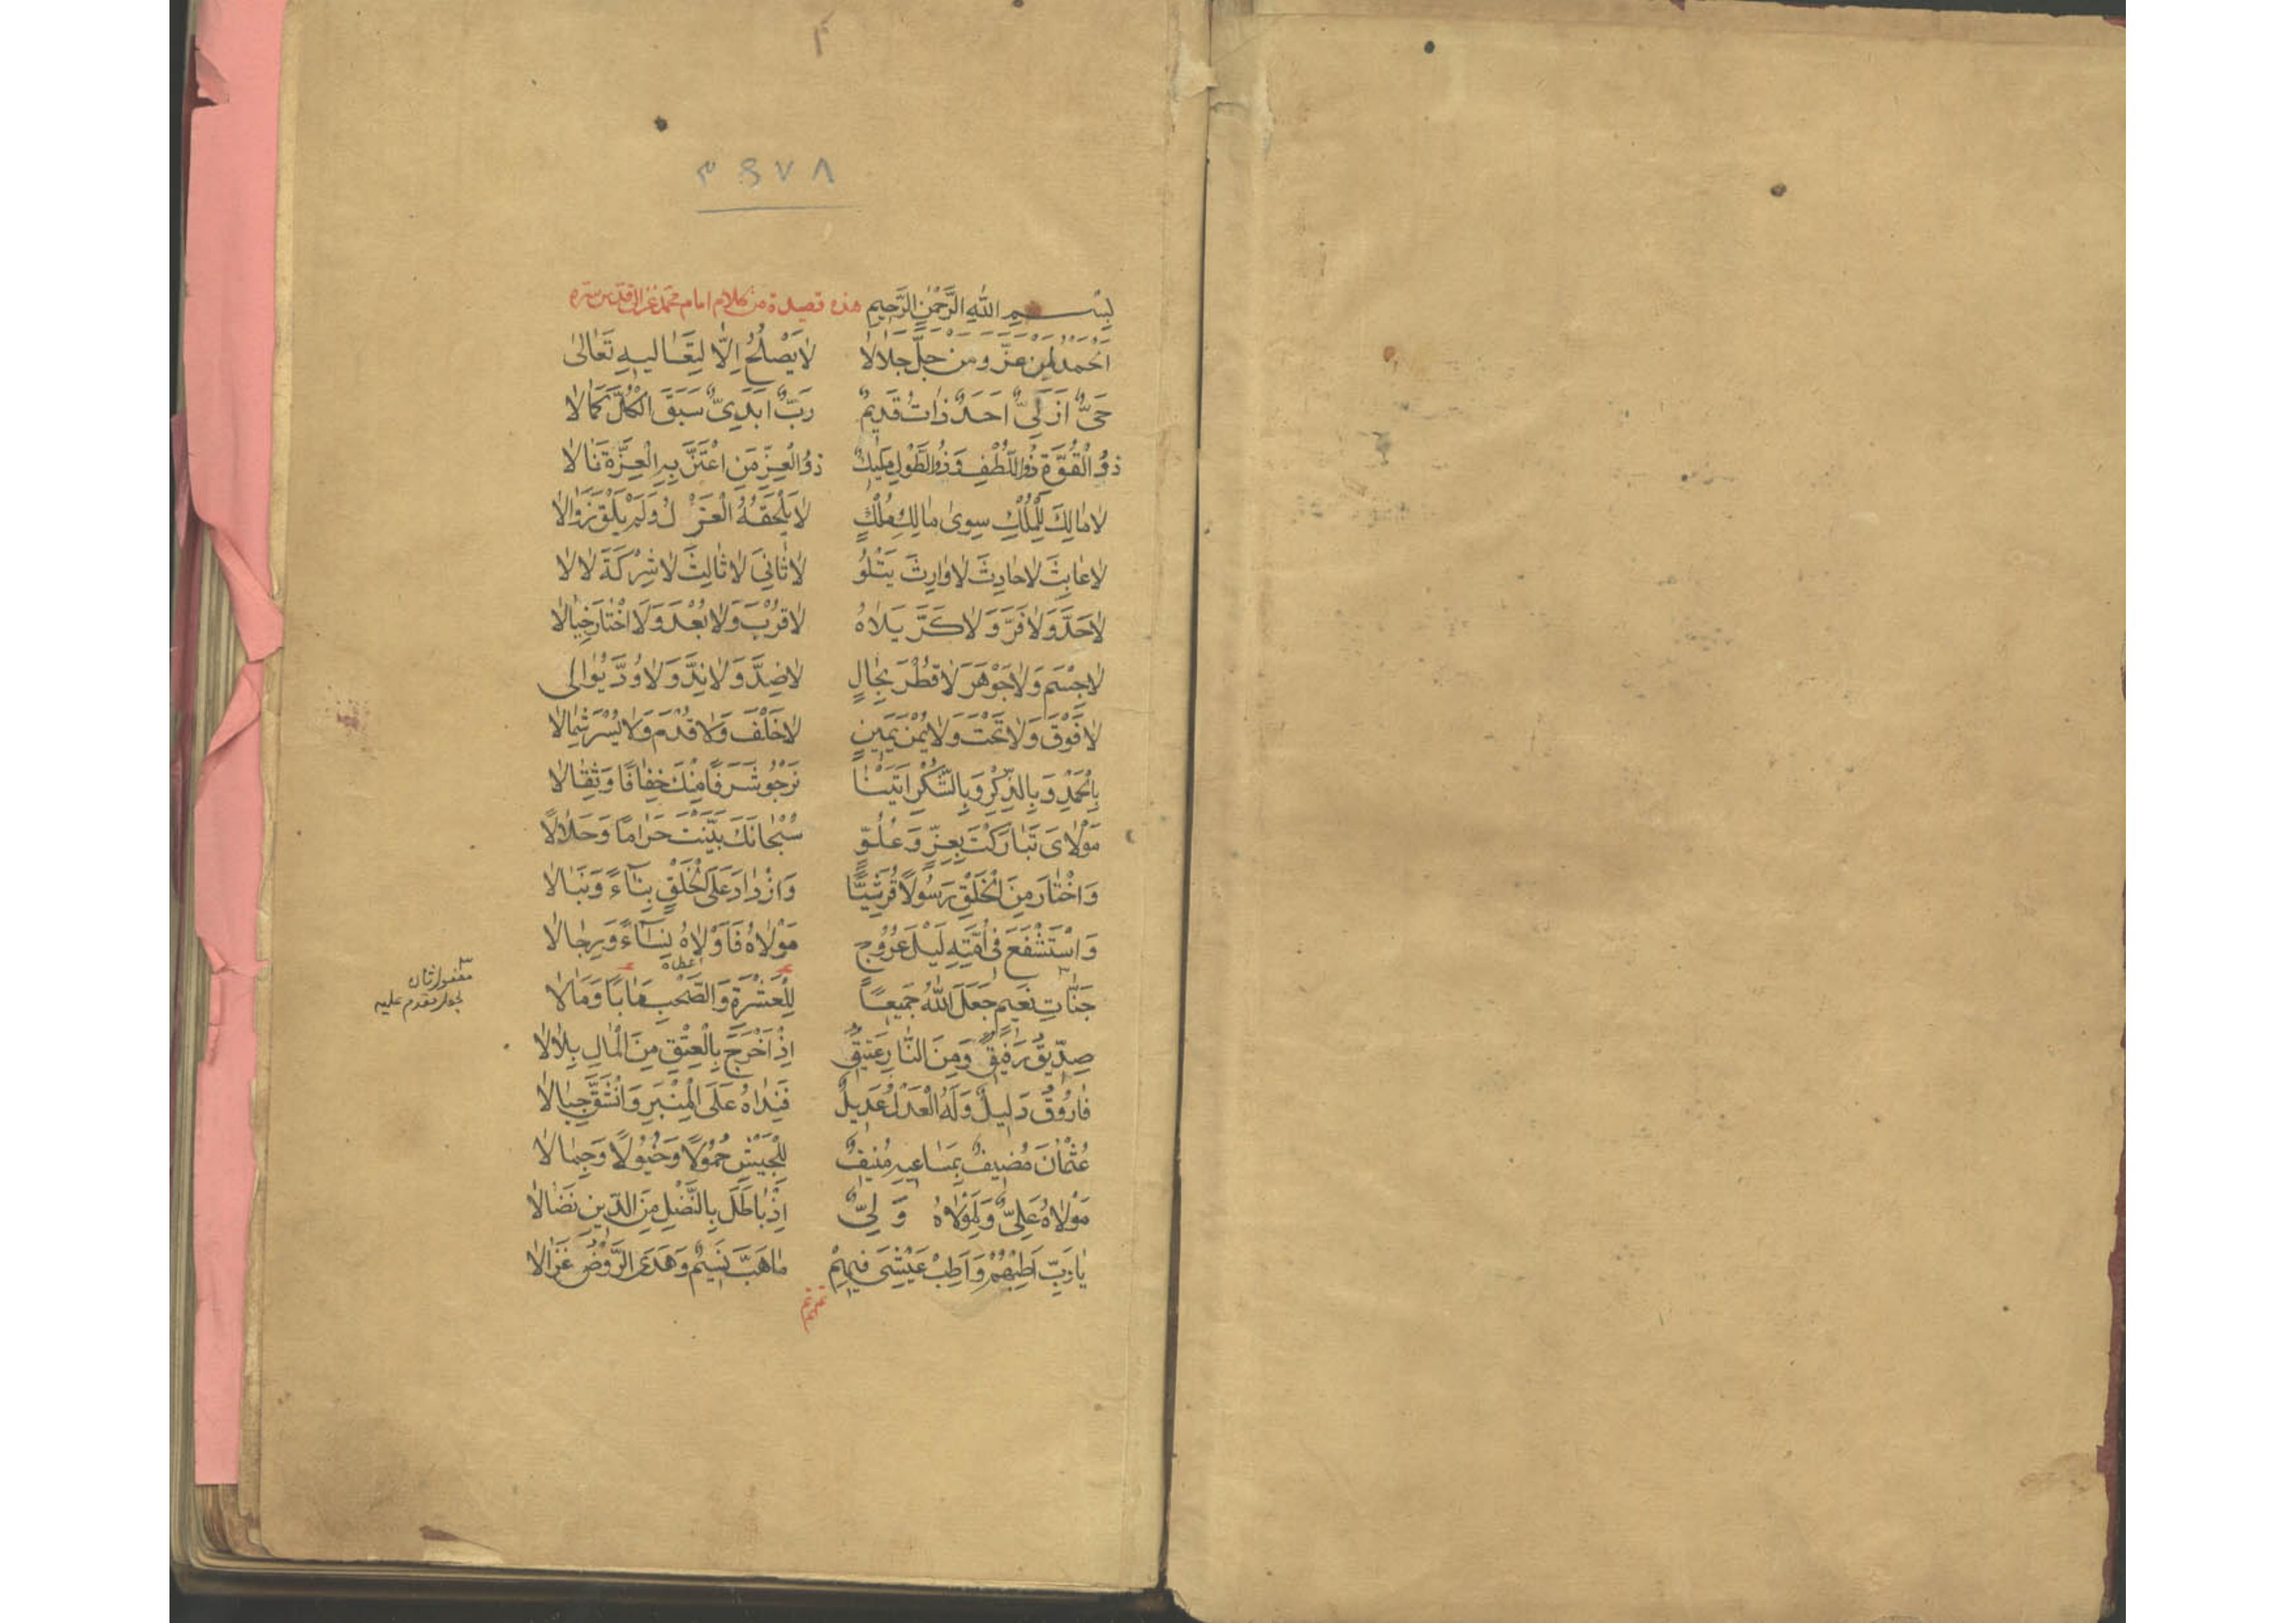 ٣٤٧٨
بِسْمِ اللّٰهِ الرَّحْمٰنِ الرَّحِيمِ هذه قصيدة من كلام امام محمد غزالى قدس سره
اَلْحَمْدُ لِمَنْ عَزَّ وَمَنْ جَلَّ جَلَالَا لَا يَصْلُحُ اِلَّا لِتَعَالِيهِ تَعَالٰى
حَىٌّ اَزَلِىٌّ اَحَدٌ ذَاتُ قَدِيمٌ رَبٌّ اَبَدِىٌّ سَبَقَ الْكُلَّ كَمَالَا
ذُو الْقُوَّةِ ذُو اللُّطْفِ وَذُو الطَّوْلِ مَلِيكٌ ذُو الْعِزِّ مَنِ اعْتَزَّ بِهِ الْعِزَّةَ نَالَا
لَا مَالِكَ لِلْمُلْكِ سِوٰى مَالِكِ مُلْكٍ لَا يَلْحَقُهُ الْعَزْلُ وَلَمْ يَلْقَ زَوَالَا
لَا عَابِثَ لَا حَادِثَ لَا وَارِثَ يَتْلُو لَا ثَانِىَ لَا ثَالِثَ لَا شِرْكَةَ لَا لَا
لَا حَدَّ وَلَا فَرَّ وَلَا كَرَّ يَلَاهُ لَا قُرْبَ وَلَا بُعْدَ وَلَا اخْتَارَ خِيَالَا
لَا جِسْمَ وَلَا جَوْهَرَ لَا قُطْرَ بِحَالٍ لَا ضِدَّ وَلَا نِدَّ وَلَا وُدَّ يُوَالى
لَا فَوْقَ وَلَا تَحْتَ وَلَا يُمْنَ يَمِينٍ لَا خَلْفَ وَلَا قُدْمَ وَلَا يُسْرَ شِمَالَا
بِالْحَمْدِ وَبِالذِّكْرِ وَبِالشُّكْرِ اَتَيْنَا نَرْجُو شَرَفًا مِنْكَ خِفَافًا وَثِقَالَا
مَوْلَاىَ تَبَارَكْتَ بِعِزٍّ وَعُلُوٍّ سُبْحَانَكَ بَيَّنْتَ حَرَامًا وَحَلَالًا
وَاخْتَارَ مِنَ الْخَلْقِ رَسُولًا قُرَشِيًّا وَازْدَادَ عَلَى الْخَلْقِ بِنَاءً وَنَبَالَا
وَاسْتَشْفَعَ فِى اُمَّتِهِ لَيْلَ عُرُوجٍ مَوْلَاهُ فَاَوْلَاهُ نِسَاءً وَرِجَالَا
اعطاه
جَنَّاتِ نَعِيمٍ جَعَلَ اللّٰهُ جَمِيعًا لِلْعَشْرَةِ وَالصَّحْبِ مَاٰبًا وَمَاٰلَا
مفعول ثان
لجعل مقدم عليه
صِدِّيقُ رَفِيقٌ وَمِنَ النَّارِ عَتِيقٌ اِذْ اَخْرَجَ بِالْعِتْقِ مِنَ الْمَالِ بِلَالَا
فَارُوقُ دَلِيلٌ وَلَهُ الْعَدْلُ عَدِيلٌ فَنِدَاهُ عَلَى الْمِنْبَرِ وَانْشَقَّ جِبَالَا
عُثْمَانَ مُضِيفٌ بِمَسَاعِيهِ مُنِيفٌ لِلْجَيْشِ حُمُولًا وَخُيُولًا وَجِمَالَا
مَوْلَاهُ عَلِىٌّ وَلِمَوْلَاهُ وَلِىٌّ اِذْ بَاطَلَ بِالنَّضْلِ مِنَ الدِّينِ نَضَالَا
يَا رَبِّ اَطِبْهُمْ وَاَطِبْ عَيْشِىَ فِيهِمْ مَا هَبَّ نَسِيمٌ وَهَدَى الرَّوْضُ غَزَالَا